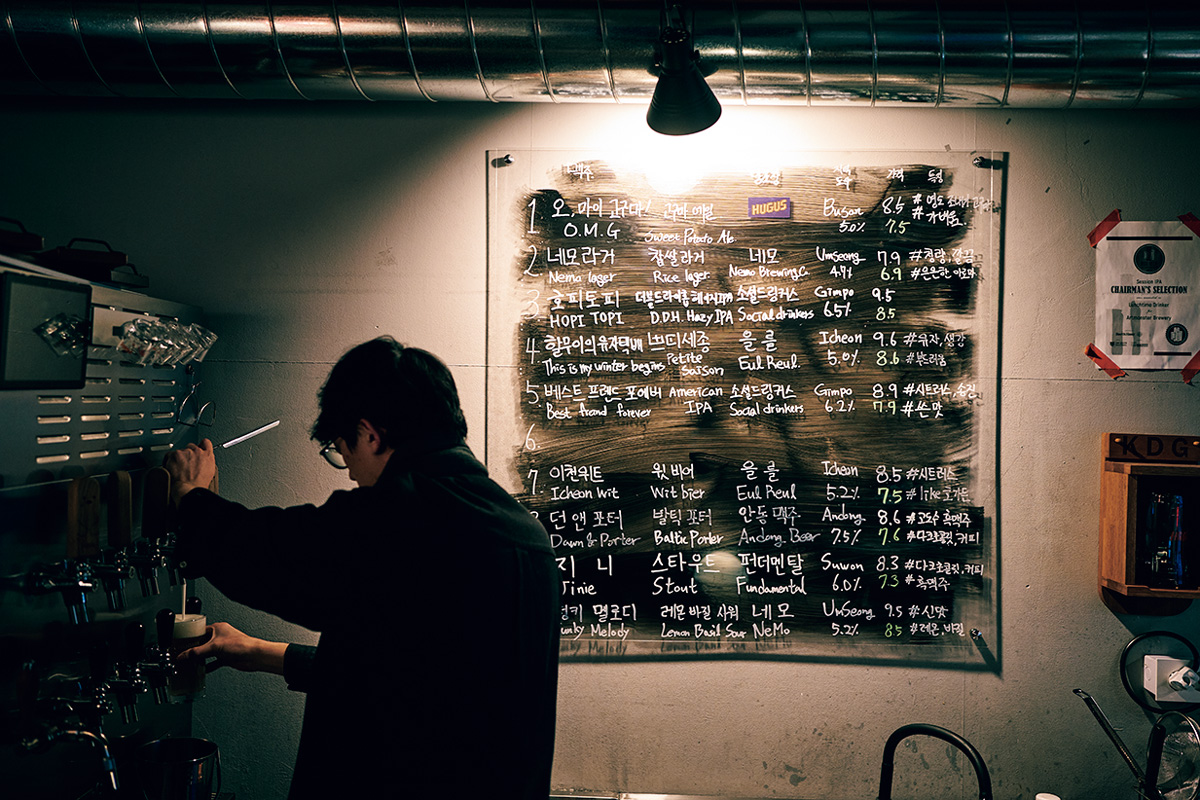 맥주 가격 특징
1 오, 마이 고구마! 고구마 에일 HUGUS Busan 8.5
O.M.G Sweet Potato Ale 5.0% 7.5 #가벼움
2 네모 라거 찹쌀 라거 네모 UmSeong 7.9 #청량, 깔끔
Nemo lager Rice lager Nemo Brewing Co. 4.7% 6.9 #은은한 아로마
3 호피토피 소셜드링커스 Gimpo 9.5
HOPI TOPI D.D.H. Hazy IPA Social drinkers 6.5% 8.5
4. 할무이의 유자턱배 쁘띠세종 을를 Icheon 9.6 #유자, 생강
This is my winter begins Petite Saison Eul Reul. 5.0% 8.6 #부드러움
5 베스트 프렌드 포에버 American 소셜드링커스 Gimpo 8.9 #시트러스, 송진
Best frand forever IPA Social drinkers 6.2% 7.9 #쓴맛
6.
7 이천위트 윗 비어 을를 Icheon 8.5 #시트러스
Icheon Wit Wit bier Eul Reul 5.2% 7.5 #like 호가든
던 앤 포터 발틱 포터 안동 맥주 Andong 8.6 #고도수 흑맥주
Dawn & Porter Baltic Porter Andong Beer 7.5% 7.6 #다크초콜릿, 커피
지니 스타우트 펀더멘탈 Suwon 8.3 #다크초콜릿, 커피
Jinie Stout Fundamental 6.0% 7.3 #흑맥주
멜로디 레몬 바질 사워 네모 UmSeong 9.5 #신맛
Melody Lemon Basil Sour NeMo 5.2% 8.5 #레몬, 바질
Session IPA
CHAIRMAN'S SELECTION
Lunchtime Drinker
Brewery
KDG